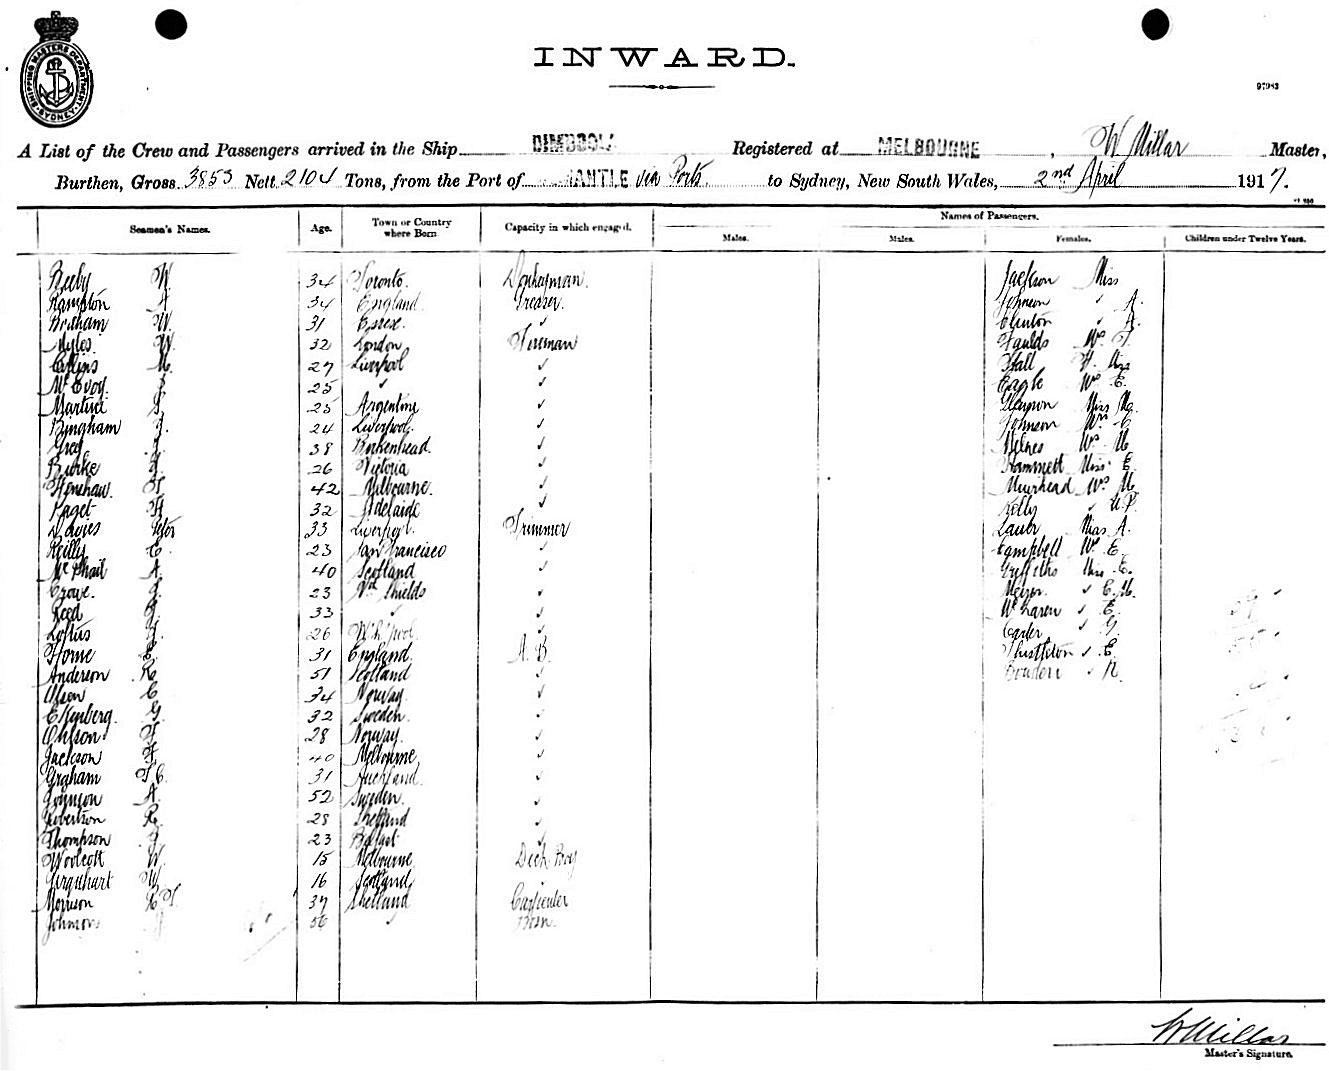 SHIPPING MASTERS DEPARTMENT SYDNEY
INWARD.
97983
A List of the Crew and Passengers arrived in the Ship DIMBOOLA Registered at MELBOURNE, W Millar Master,
Burthen, Gross 3853 Nett 2104 Tons, from the Port of MANTLE via Ports. to Sydney, New South Wales, 2nd April 1917.
Names of Passengers.
Seamen's Names. Age. Town or Country where Born Capacity in which engaged. Males. Males. Females. Children under Twelve Years.
Beeby W. 34 Toronto. Donkeyman. Jackson Miss
Rampton A 34 England. Greaser. Johnson " A.
W. 31 Essex. " Clinton " A.
Myles. W 32 London Fireman Faulds Mrs F.
Collins M. 27 Liverpool " Hall H. Miss
Mc Evoy. 25 " " Eagle Mrs E.
25 Argentine " Miss M.
Bingham J. 24 Liverpool. " Johnson Mrs E
Greg 38 Birkenhead. " Milnes Mrs M
Burke 26 Victoria " Hammett Miss E.
Henshaw. T. 42 Melbourne. " Muirhead Mrs M
Paget H 32 Adelaide " Kelly "
Davies 33 Liverpool. Trimmer Miss A.
Reilly C. 23 San Francisco " Campbell Mrs E.
Mc Phail A 40 Scotland " Griffiths Miss E.
Crowe. 23 Nth Shields " " E.M.
Reed 33 " " Mc Laren " E.
Loftus 26 " Carter " G.
Horne 31 England. A.B. Thistleton " E.
Anderson R. 51 Scotland " " R.
Olsen C 34 Norway. "
32 Sweden. "
Ohlson 28 Norway. "
Jackson A 40 Melbourne. "
Graham C. 31 Auckland. "
Johnson A. 52 Sweden. "
Robertson 28 Shetland "
Thompson J 23 Belfast "
Woolcott W. 15 Melbourne Deck Boy
Urquhart W. 16 Scotland "
Morrison 37 Shetland Carpenter
Johnson J 56 " Bosn.
W Millar
Master's Signature.